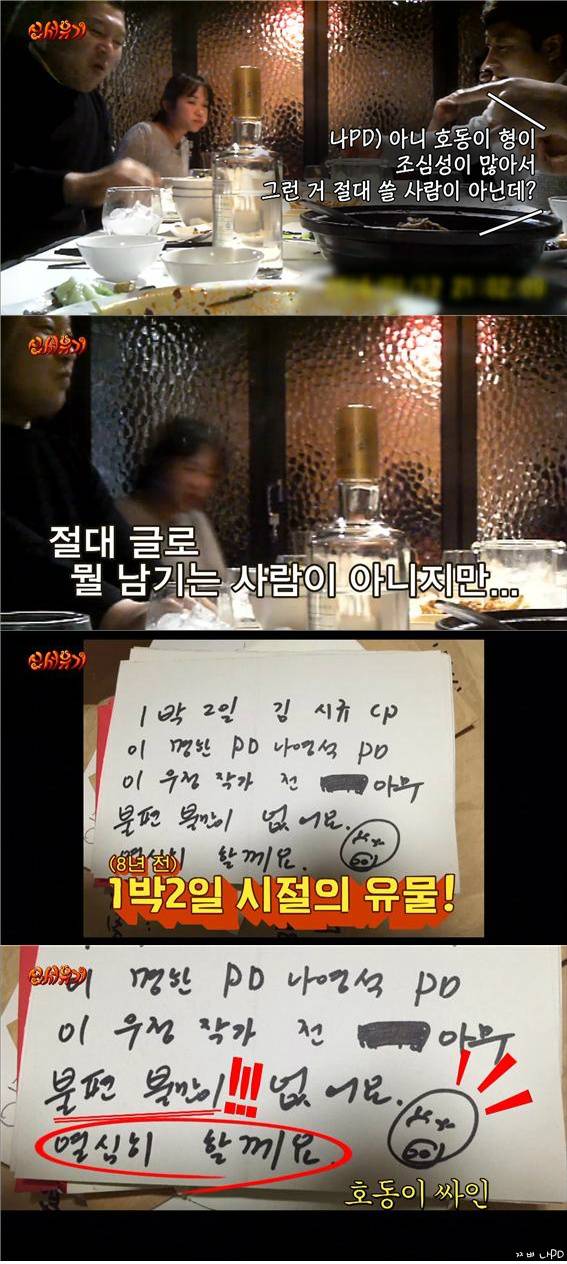 신서유기
나PD) 아니 호동이 형이
조심성이 많아서
그런 거 절대 쓸 사람이 아닌데?
신서유기
절대 글로
뭘 남기는 사람이 아니지만...
신서유기
1박 2일 김 시규 CP
이 명한 PD 나영석 PD
이 우정 작가 전 아무
불편 불만이 없어요.
열심히 할께요.
(8년 전)
1박2일 시절의 유물!
신서유기
이 명한 PD 나영석 PD
이 우정 작가 전 아무
불편 불만이!!! 없어요.
열심히 할께요.
호동이 싸인
쯔삐 나PD